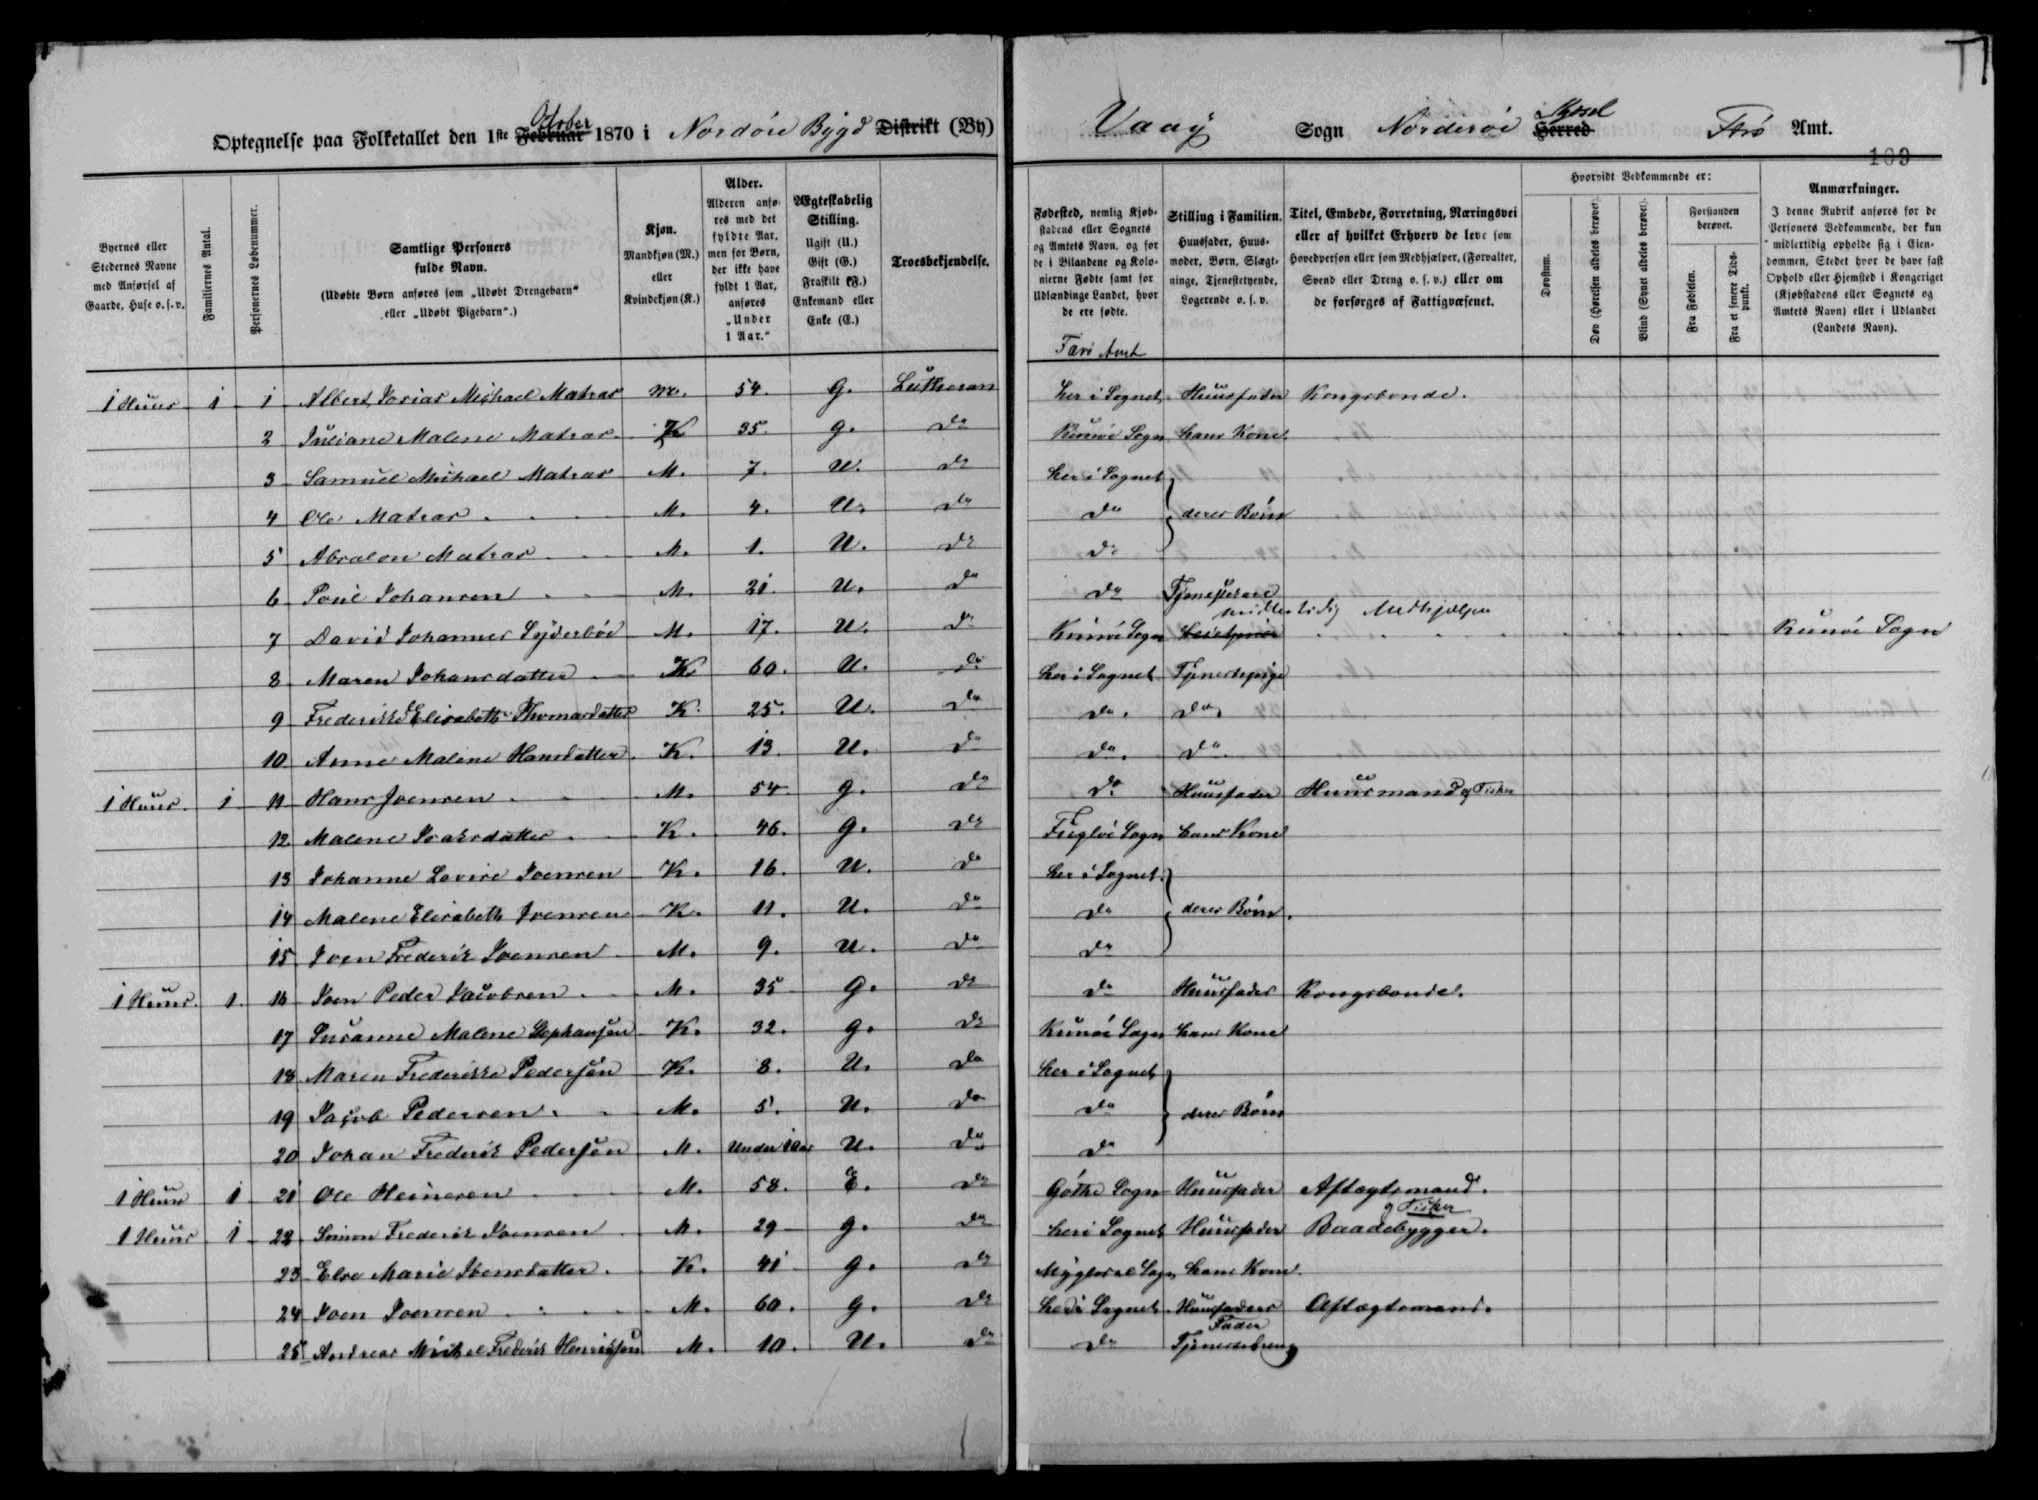 Optegnelse paa Folketallet den 1ste October Februar 1870 i Nordöre Bygd Distrikt (By)
Vaag Sogn Norderöe Sysel Herred Færö Amt.
109
Byernes eller Stedernes Navne med Anførsel af Gaarde, Huse o. s. v.
Familiernes Antal.
Personernes Løbenummer.
Samtlige Personers fulde Navn.
(Udøbte Børn anføres som „Udøbt Drengebarn“ eller „Udøbt Pigebarn“.)
Kjøn.
Mandkjøn (M.) eller Kvindekjøn (K.)
Alder.
Alderen anføres med det fyldte Aar, men for Børn, der ikke have fyldt 1 Aar, anføres „Under 1 Aar.“
Ægteskabelig Stilling.
Ugift (U.) Gift (G.) Fraskilt (F.) Enkemand eller Enke (E.)
Troesbekjendelse.
Fødested, nemlig Kjøbstadens eller Sognets og Amtets Navn, og for de i Bilandene og Kolonierne Fødte samt for Udlændinge Landet, hvor de ere fødte.
Stilling i Familien.
Huusfader, Huusmoder, Børn, Slægtninge, Tjenestetyende, Logerende o. s. v.
Titel, Embede, Forretning, Næringsvei eller af hvilket Erhverv de leve som Hovedperson eller som Medhjælper, (Forvalter, Svend eller Dreng o. s. v.) eller om de forsørges af Fattigvæsenet.
Hvorvidt Vedkommende er:
Døvstum.
Døv (Hørelsen aldeles berøvet).
Blind (Synet aldeles berøvet).
Forstanden berøvet.
Fra Fødselen.
Fra et senere Tidspunkt.
Anmærkninger.
I denne Rubrik anføres for de Personers Vedkommende, der kun midlertidig opholde sig i Eiendommen, Stedet hvor de have fast Ophold eller Hjemsted i Kongeriget (Kjøbstadens eller Sognets og Amtets Navn) eller i Udlandet (Landets Navn).
Færö Amt
1 Huus 1 1 Albert Josias Michael Matras M. 54. G. Lutheran her i Sognet Huusfader Kongsbonde.
2 Juliane Malene Matras K 35. G. Do Kunöe Sogn hans Kone.
3 Samuel Michael Matras M. 7. U. Do her i Sognet
4 Ole Matras M. 4. U. Do Do deres Börn
5 Absalon Matras M. 1. U. Do Do
6 Poul Johansen M. 21 U. Do Do Tjenestekarl
7 David Johannes Lyderböe M. 17. U. Do Kunöe Sogn midlertidig Medhjælper Kunöe Sogn
8 Maren Johansdatter K. 60. U. Do her i Sognet Tjenestepige
9 Frederikke Elisabeth Thomasdatter K. 25. U. Do Do. Do.
10 Anne Malene Hansdatter K. 13 U. Do Do. Do.
1 Huus. 1 11 Hans Joensen M. 54 G. Do Do. Huusfader Huusmand og Fisker
12 Malene Isaksdatter K. 46. G. Do Fuglöe Sogn hans Kone
13 Johanne Lovise Joensen K. 16. U. Do her i Sognet.
14 Malene Elisabeth Joensen K. 11. U. Do Do deres Börn.
15 Joen Frederik Joensen M. 9. U. Do Do
1 Huus. 1. 16 Joen Peder Jacobsen M. 35 G. Do Do Huusfader Kongsbonde.
17 Susanne Malene Stephansen K. 32. G. Do Kunöe Sogn hans Kone
18 Maren Frederikke Pedersen K. 8. U. Do her i Sognet
19 Jacob Pedersen M. 5. U. Do Do deres Börn
20 Johan Frederik Pedersen M. Under 1 Aar U. Do Do
1 Huus 1 21 Ole Heinesen M. 58. E. Do Göthe Sogn Huusfader Aftægtsmand.
1 Huus 1 22 Simon Frederik Joensen M. 29 G. Do her i Sognet Huusfader Baadebygger og Fisker.
23 Else Marie Ibensdatter K. 41 G. Do Sogn hans Kone.
24 Joen Joensen M. 60. G. Do her i Sognet Huusfaders Fader Aftægtsmand.
25 Andreas Michael Frederik Henriksen M. 10. U. Do Do Tjenestedreng